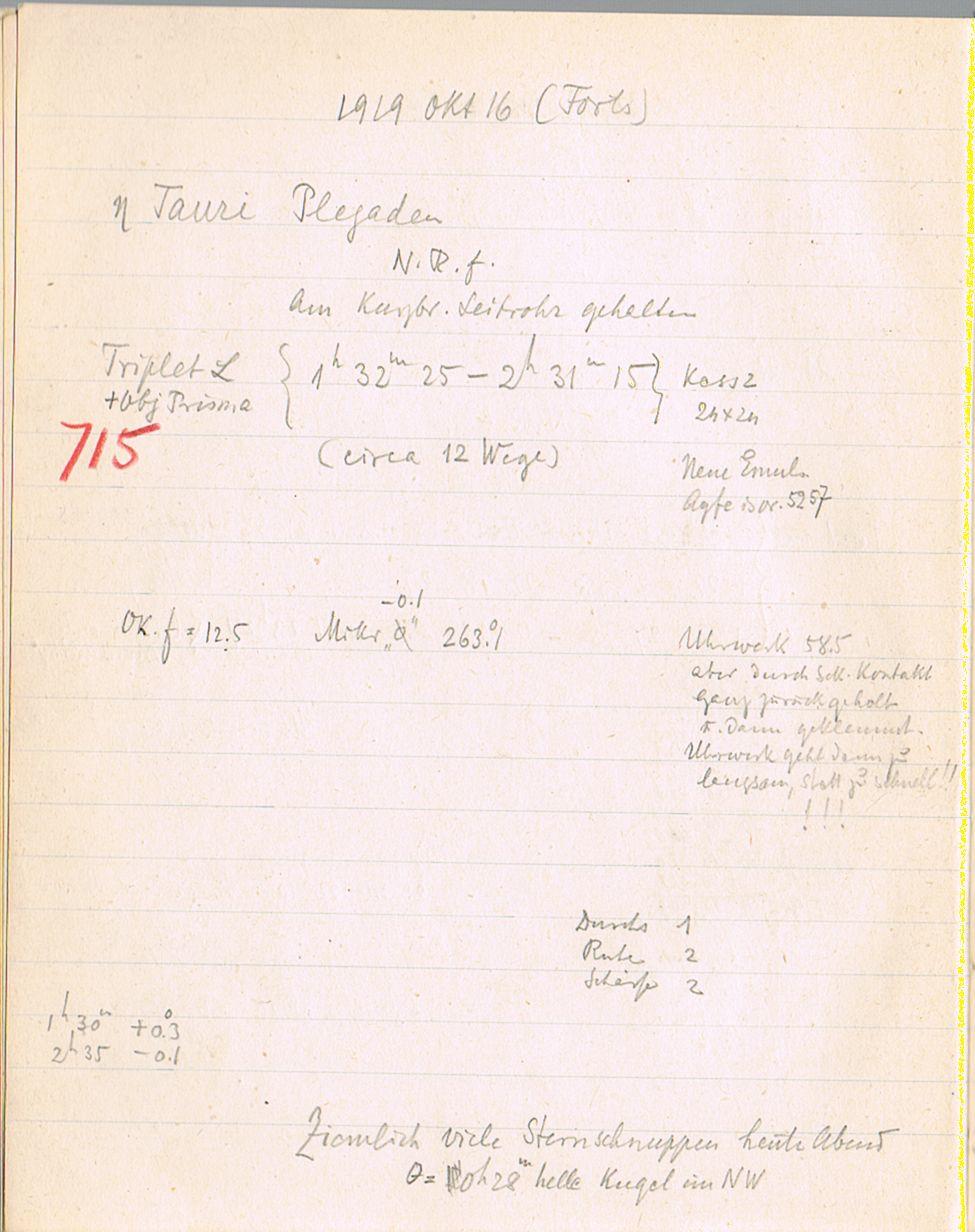 1919 Okt 16 (Forts)
η Tauri Plejaden
N. R. f.
Am Kurzbr. Leitrohr gehalten
Triplet L { 1h 32m 25 – 2h 31m 15 } Kass 2
+ Obj Prisma
24×24
715
(circa 12 Wege)
Neue Emuls.
Agfa isor. 5257
–0.1
Ok. f = 12.5 Mikr. „α" 263.°1
Uhrwerk 58.5
aber durch Sek. Kontakt
ganz zurückgeholt
u. dann geklemmt.
Uhrwerk geht dann zu
langsam, statt zu schnell!!
!!!
Durchs 1
Ruhe 2
Schärfe 2
1h 30m +0.°3
2h 35 –0.1
Ziemlich viele Sternschnuppen heute Abend
θ = 0h 28m helle Kugel im NW